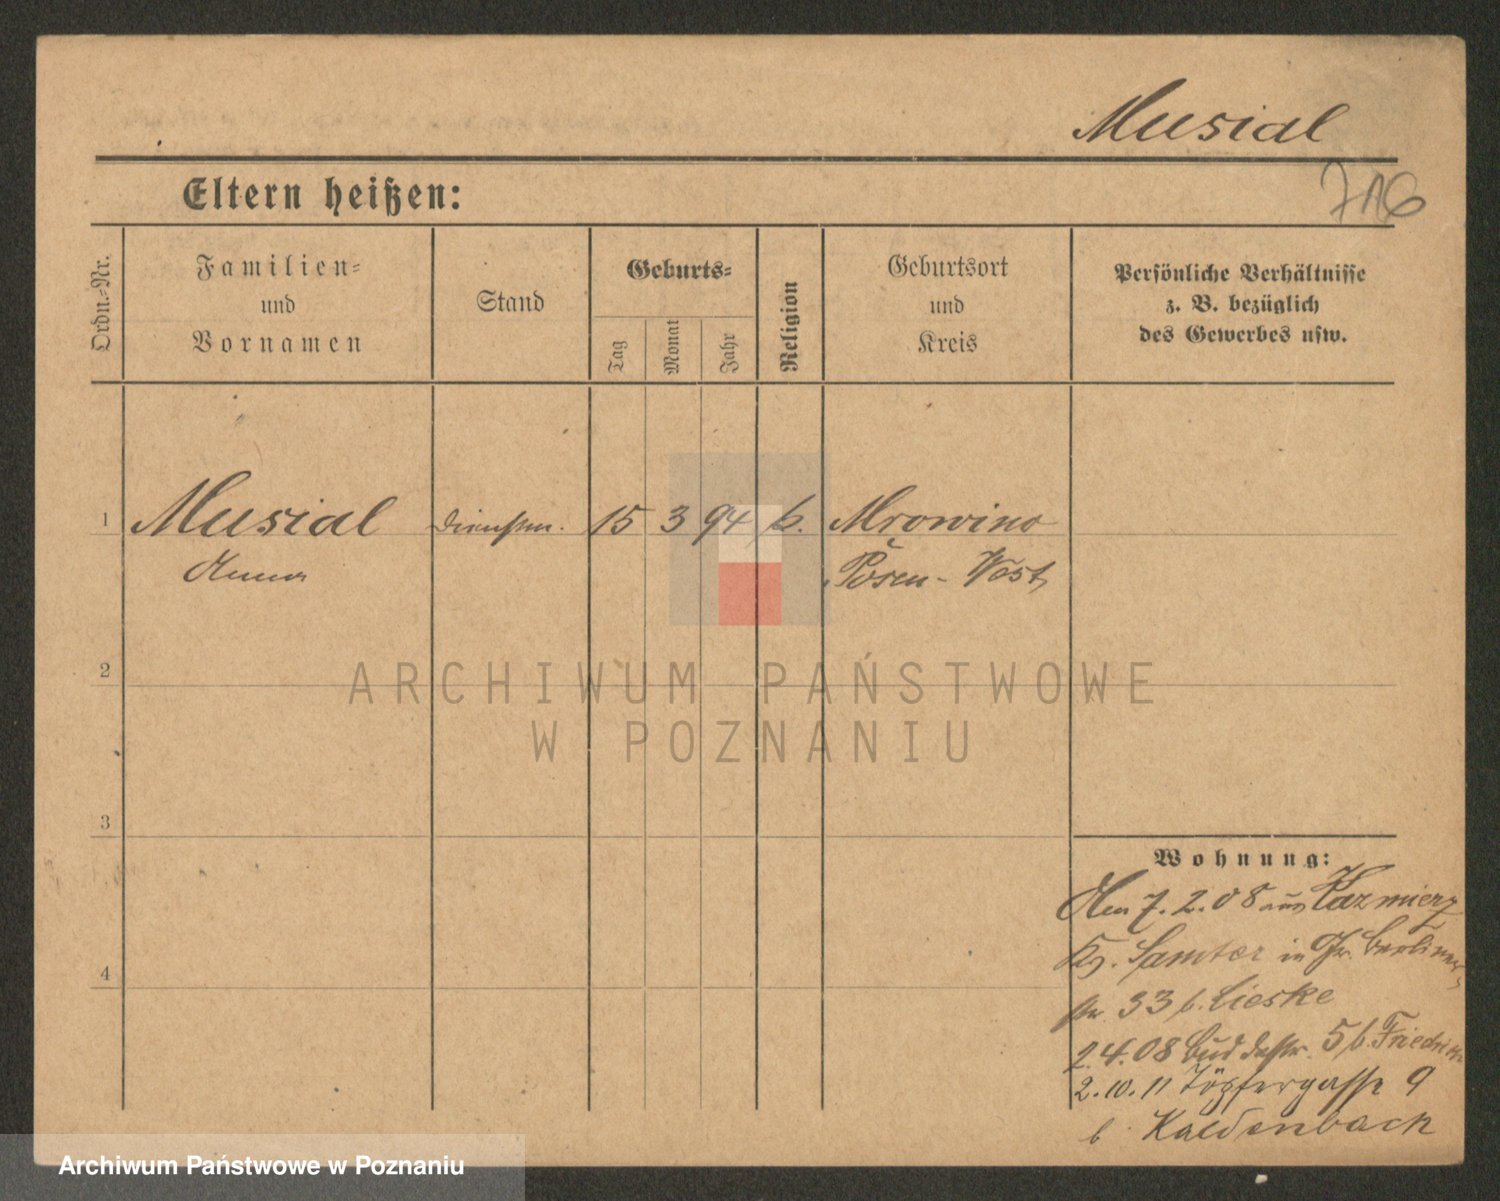 Musial
Eltern heißen:
716
Ordn.-Nr.
Familien-
und
Vornamen
Stand
Geburts-
Tag
Monat
Jahr
Religion
Geburtsort
und
Kreis
Persönliche Verhältnisse
z. B. bezüglich
des Gewerbes usw.
1 Musial Dienstm. 15 3 94 k. Mrowino
Anna Posen-West
ARCHIWUM PAŃSTWOWE
W POZNANIU
2
3
4
Wohnung:
7.2.08 aus Kazmierz
Kr. Samter in Gr. Berliner
str. 33 b. Lieske
2.4.08 Buddestr. 5 b. Friedrich
2.10.11 Töpfergasse 9
b. Kaldenbach
Archiwum Państwowe w Poznaniu